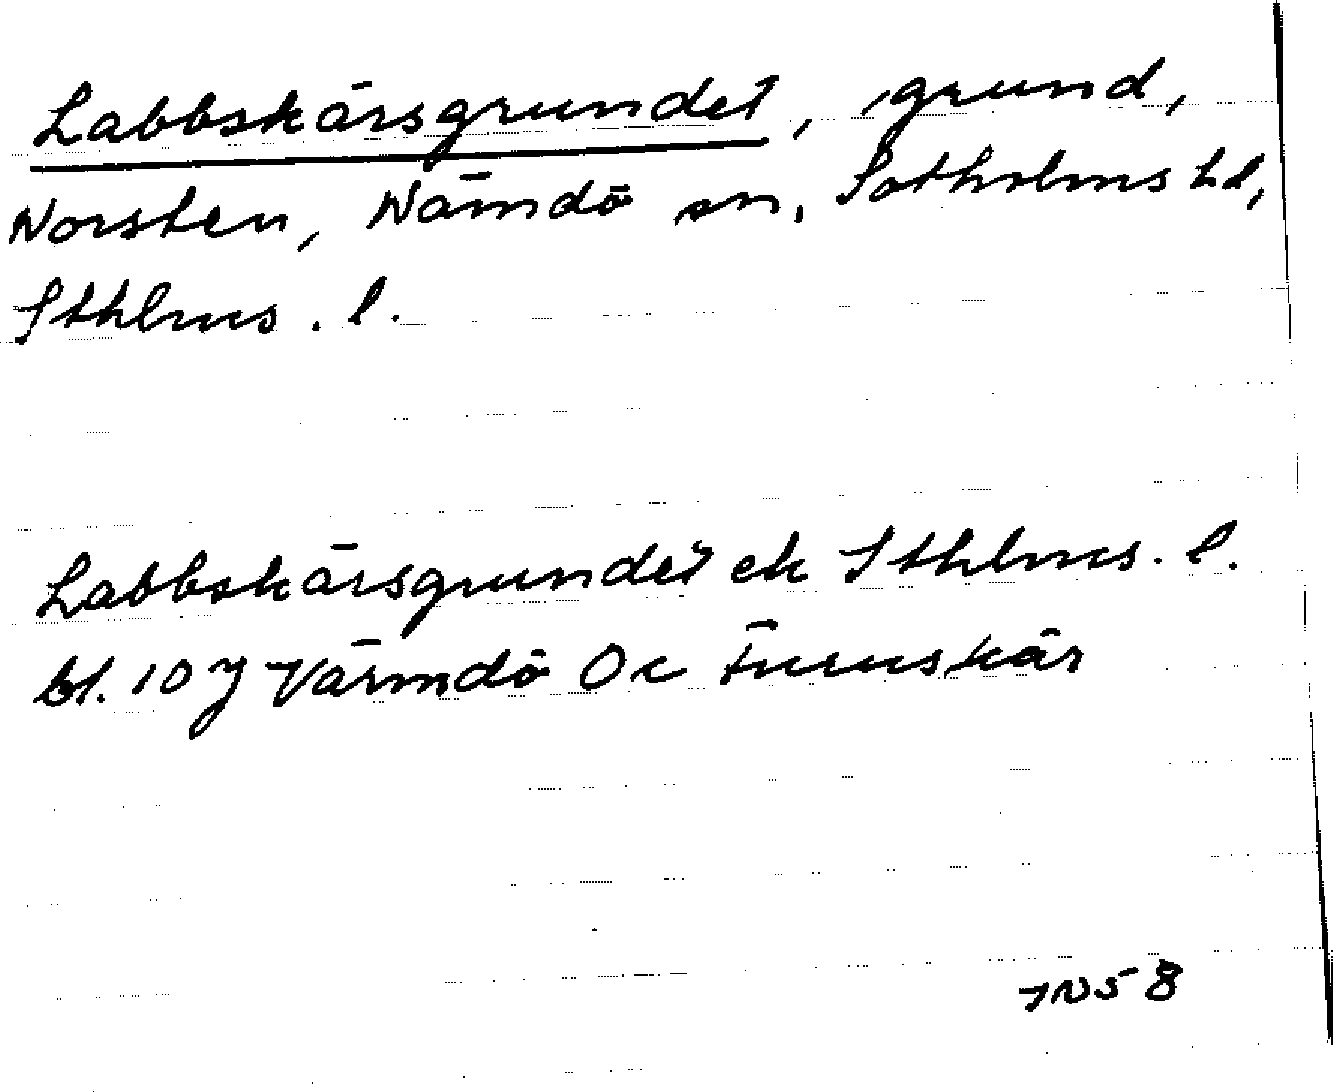 Labbskärsgrundet, grund,
Norsten, Nämdö sn, Sotholms hd,
Sthlms. l.
Labbskärsgrundet ek Sthlms. l.
bl. 10 J Värmdö Oc
7N58